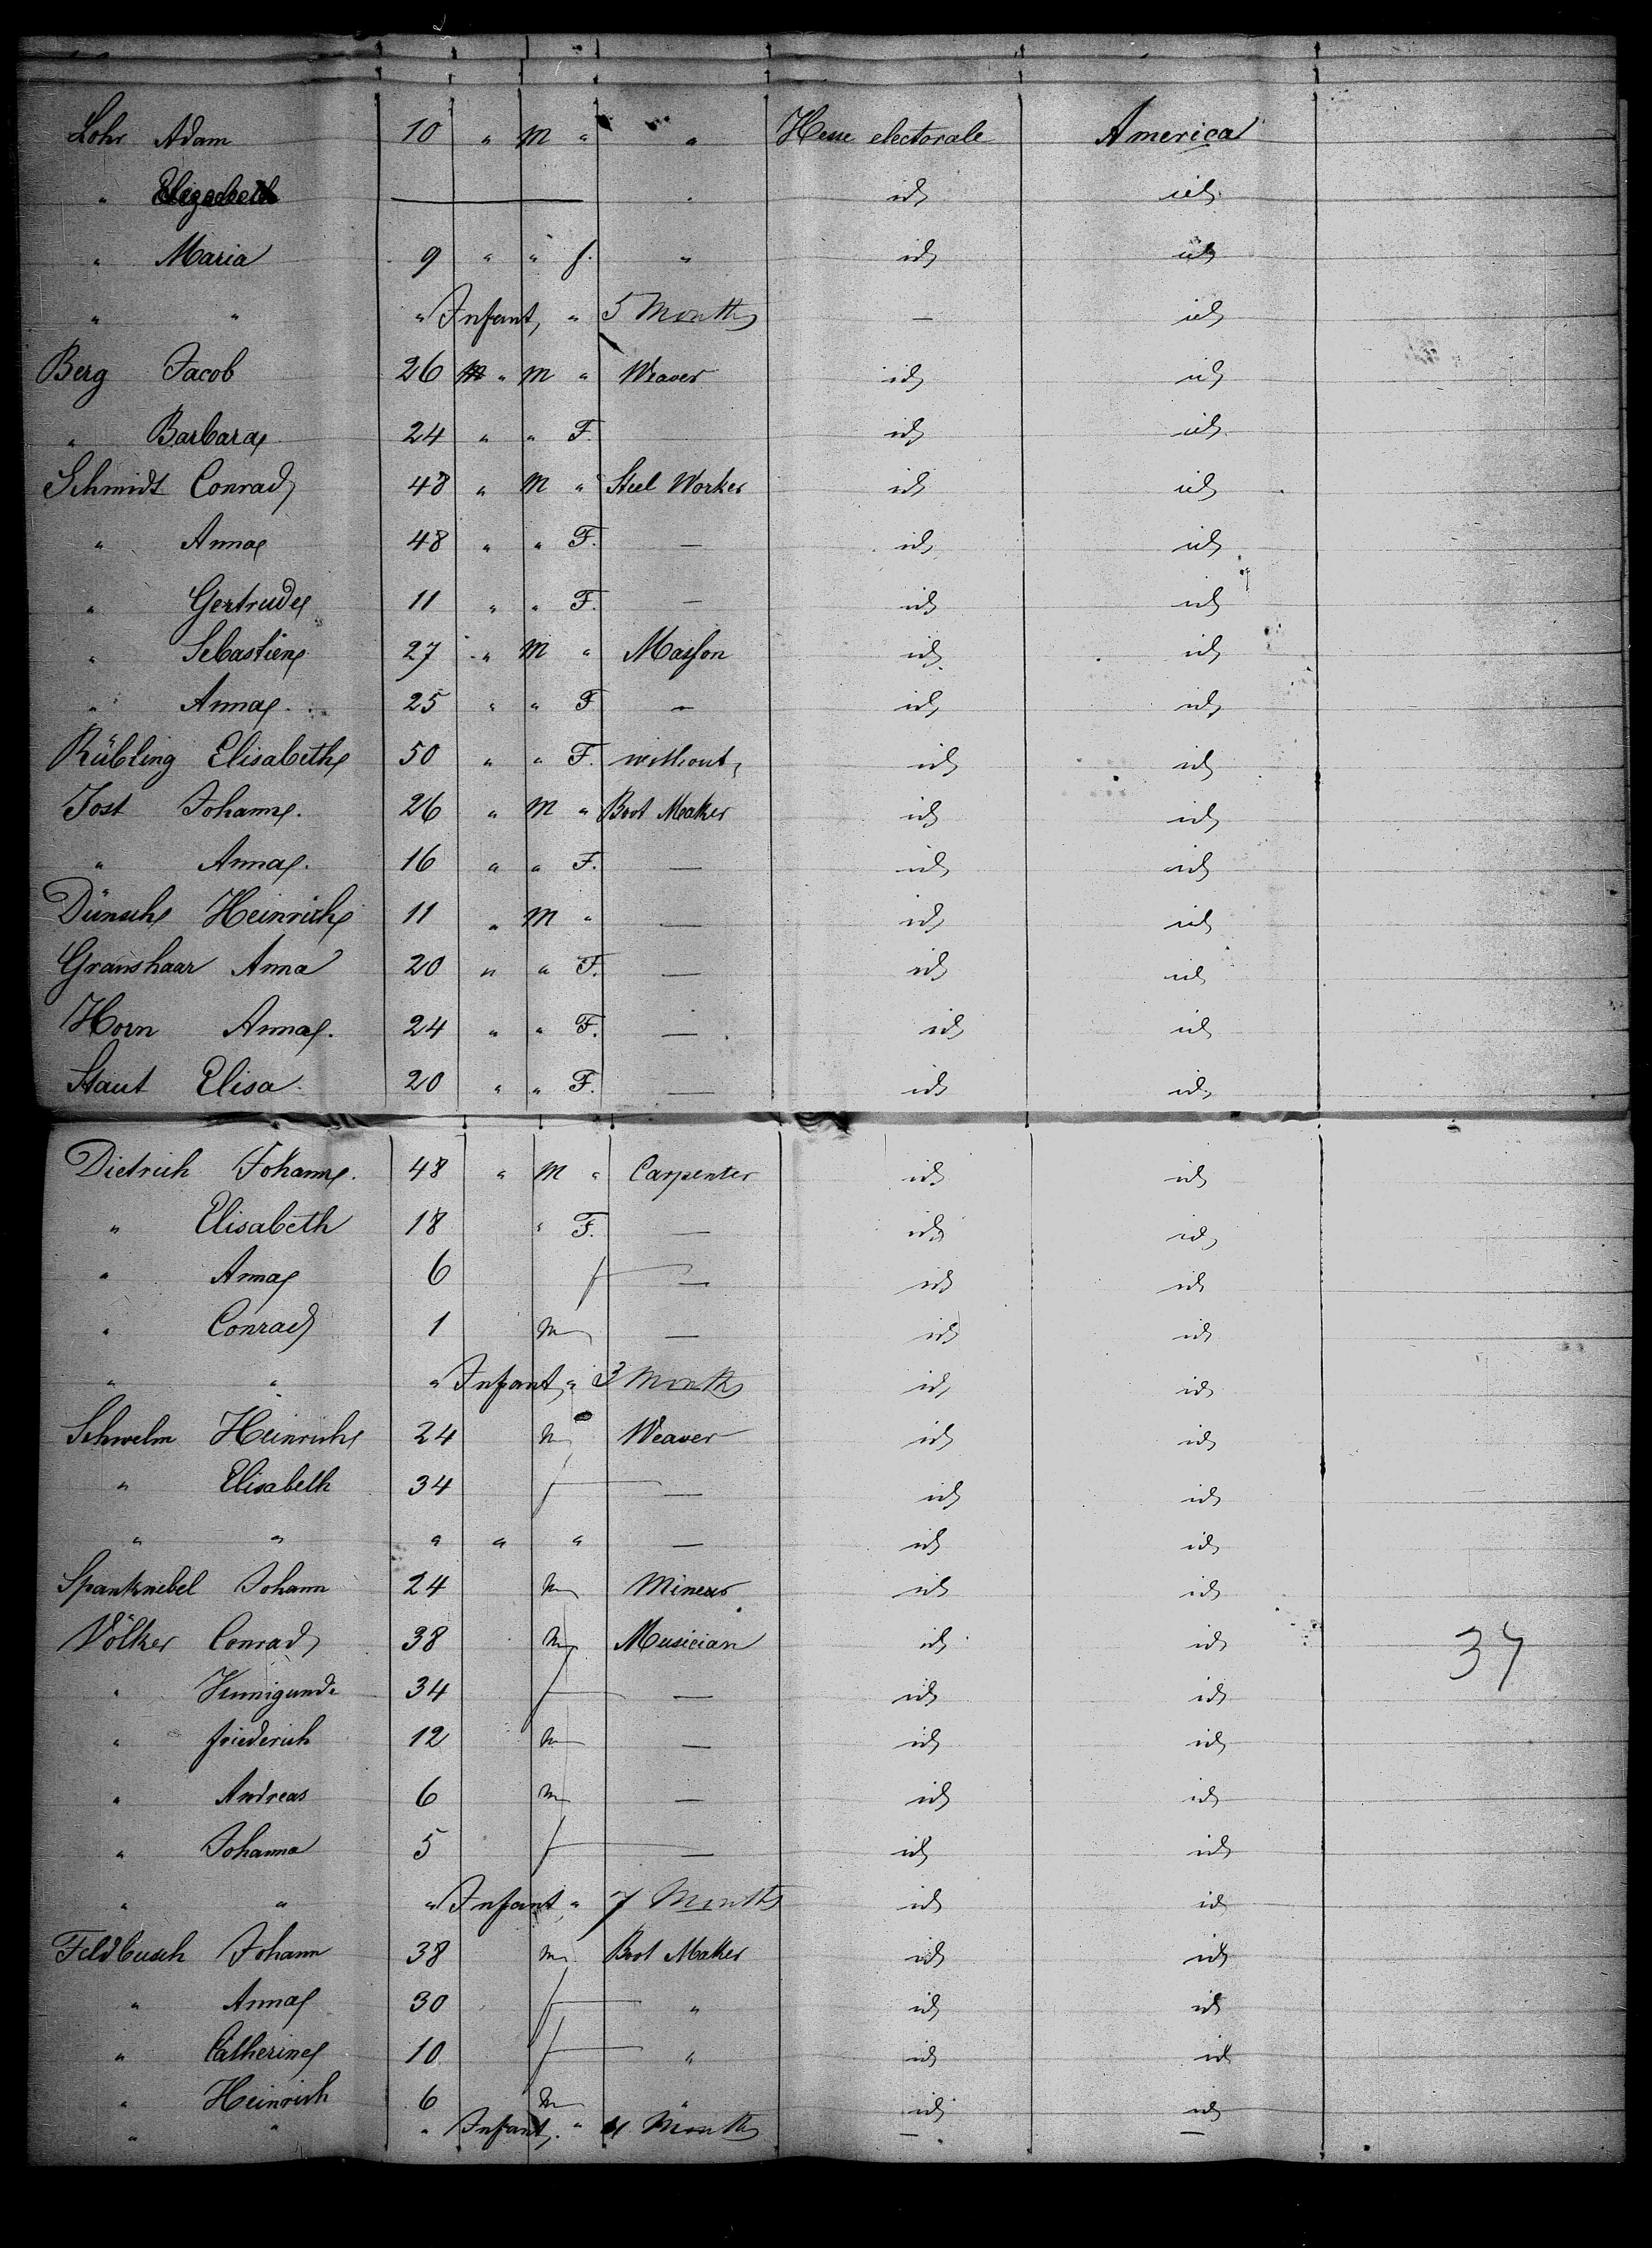 Lohr Adam 10 " M " " Hesse electorale America
" Elizabeth — " id id
" Maria 9 " " f. " id id
" " " Infant, " 5 Months — id
Berg Jacob 26 " M " Weaver id id
" Barbara 24 " " F. id id
Schmidt Conrad 48 " M " Steel Worker id id
" Anna 48 " " F. — id id
" Gertrude 11 " " F. — id id
" Sebastien 27 " M " Masson id id
" Anna. 25 " " F — id id
Rübling Elisabeth 50 " " F. without, id id
Jost Johann. 26 " M " Boot Maker id id
" Anna. 16 " " F. — id id
Dünsch Heinrich 11 " M " — id id
Granshaar Anna 20 " " F. — id id
Horn Anna. 24 " " F. — id id
Staut Elisa 20 " " F. — id id
Dietrich Johann. 48 " M " Carpenter id id
" Elisabeth 18 " F. — id id
" Anna 6 f — id id
" Conrad 1 m — id id
" " " Infant, " 3 Months id id
Schwelm Heinrich 24 m Weaver id id
" Elisabeth 34 f — id id
" " " " " — id id
Spanknebel Johann 24 m Miner id id
Völker Conrad 38 m Musician id id 34
" Kunigunde 34 f — id id
" friederich 12 m — id id
" Andreas 6 m — id id
" Johanna 5 f — id id
" " " Infant, " 7 Months id id
Feldbusch Johann 38 m Boot Maker id id
" Anna 30 f " id id
" Catherine 10 f " id id
" Heinrich 6 m " id id
" " " Infant, " Months — —